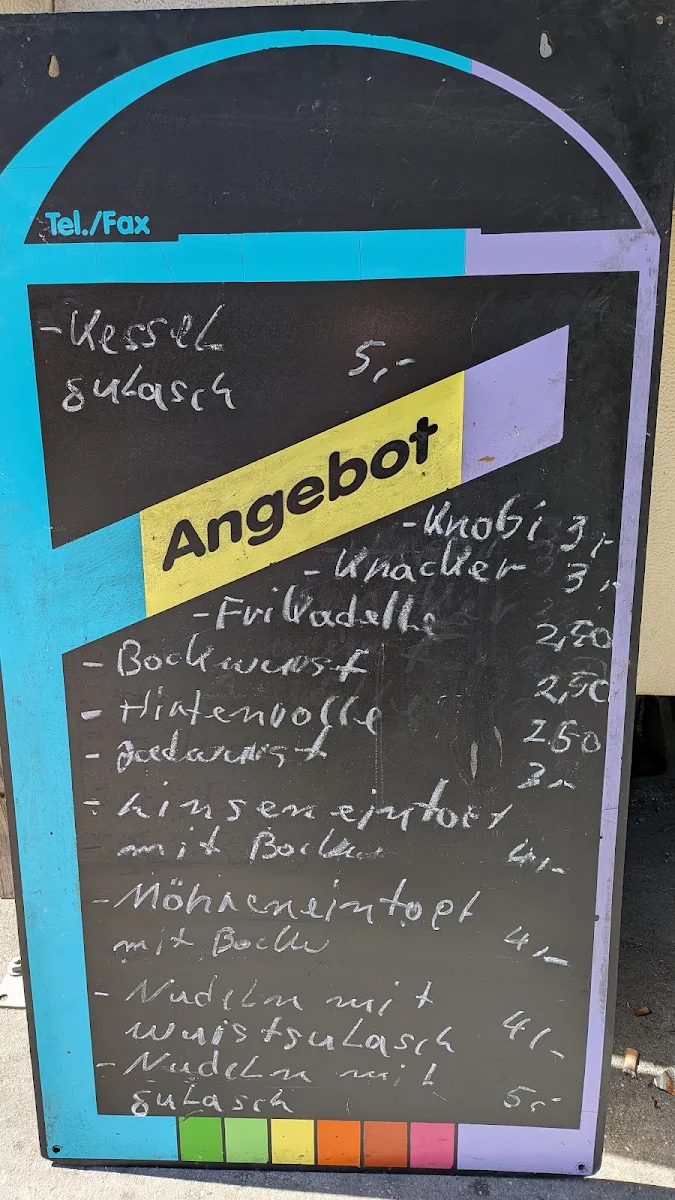 Tel./Fax
- Kessel
gulasch 5,-
Angebot
- Knobi 3,-
- Knacker 3,-
- Frikadelle
- Bockwurst
- Hirtenrolle 2,50
3,-
- Linseneintopf
mit Bockw 4,-
- Möhreneintopf
mit Bockw 4,-
- Nudeln mit
wurstgulasch 4,-
- Nudeln mit
gulasch 5,-